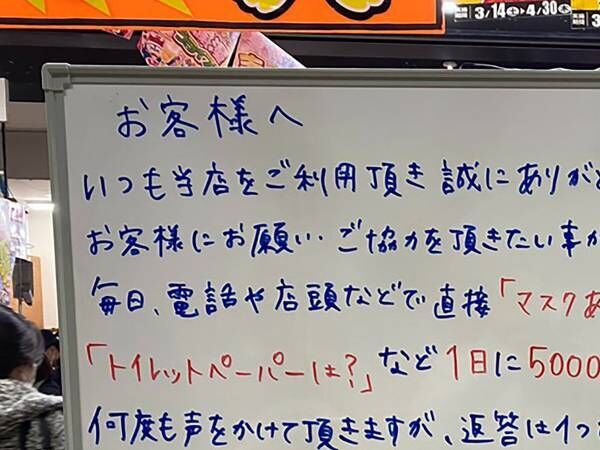 3/14土→4/30木
お客様へ
いつも当店をご利用頂き誠にありがと
お客様にお願い・ご協力を頂きたい事が
毎日、電話や店頭などで直接「マスクあ
「トイレットペーパーは?」など1日に5000
何度も声をかけて頂きますが、返答は1つ